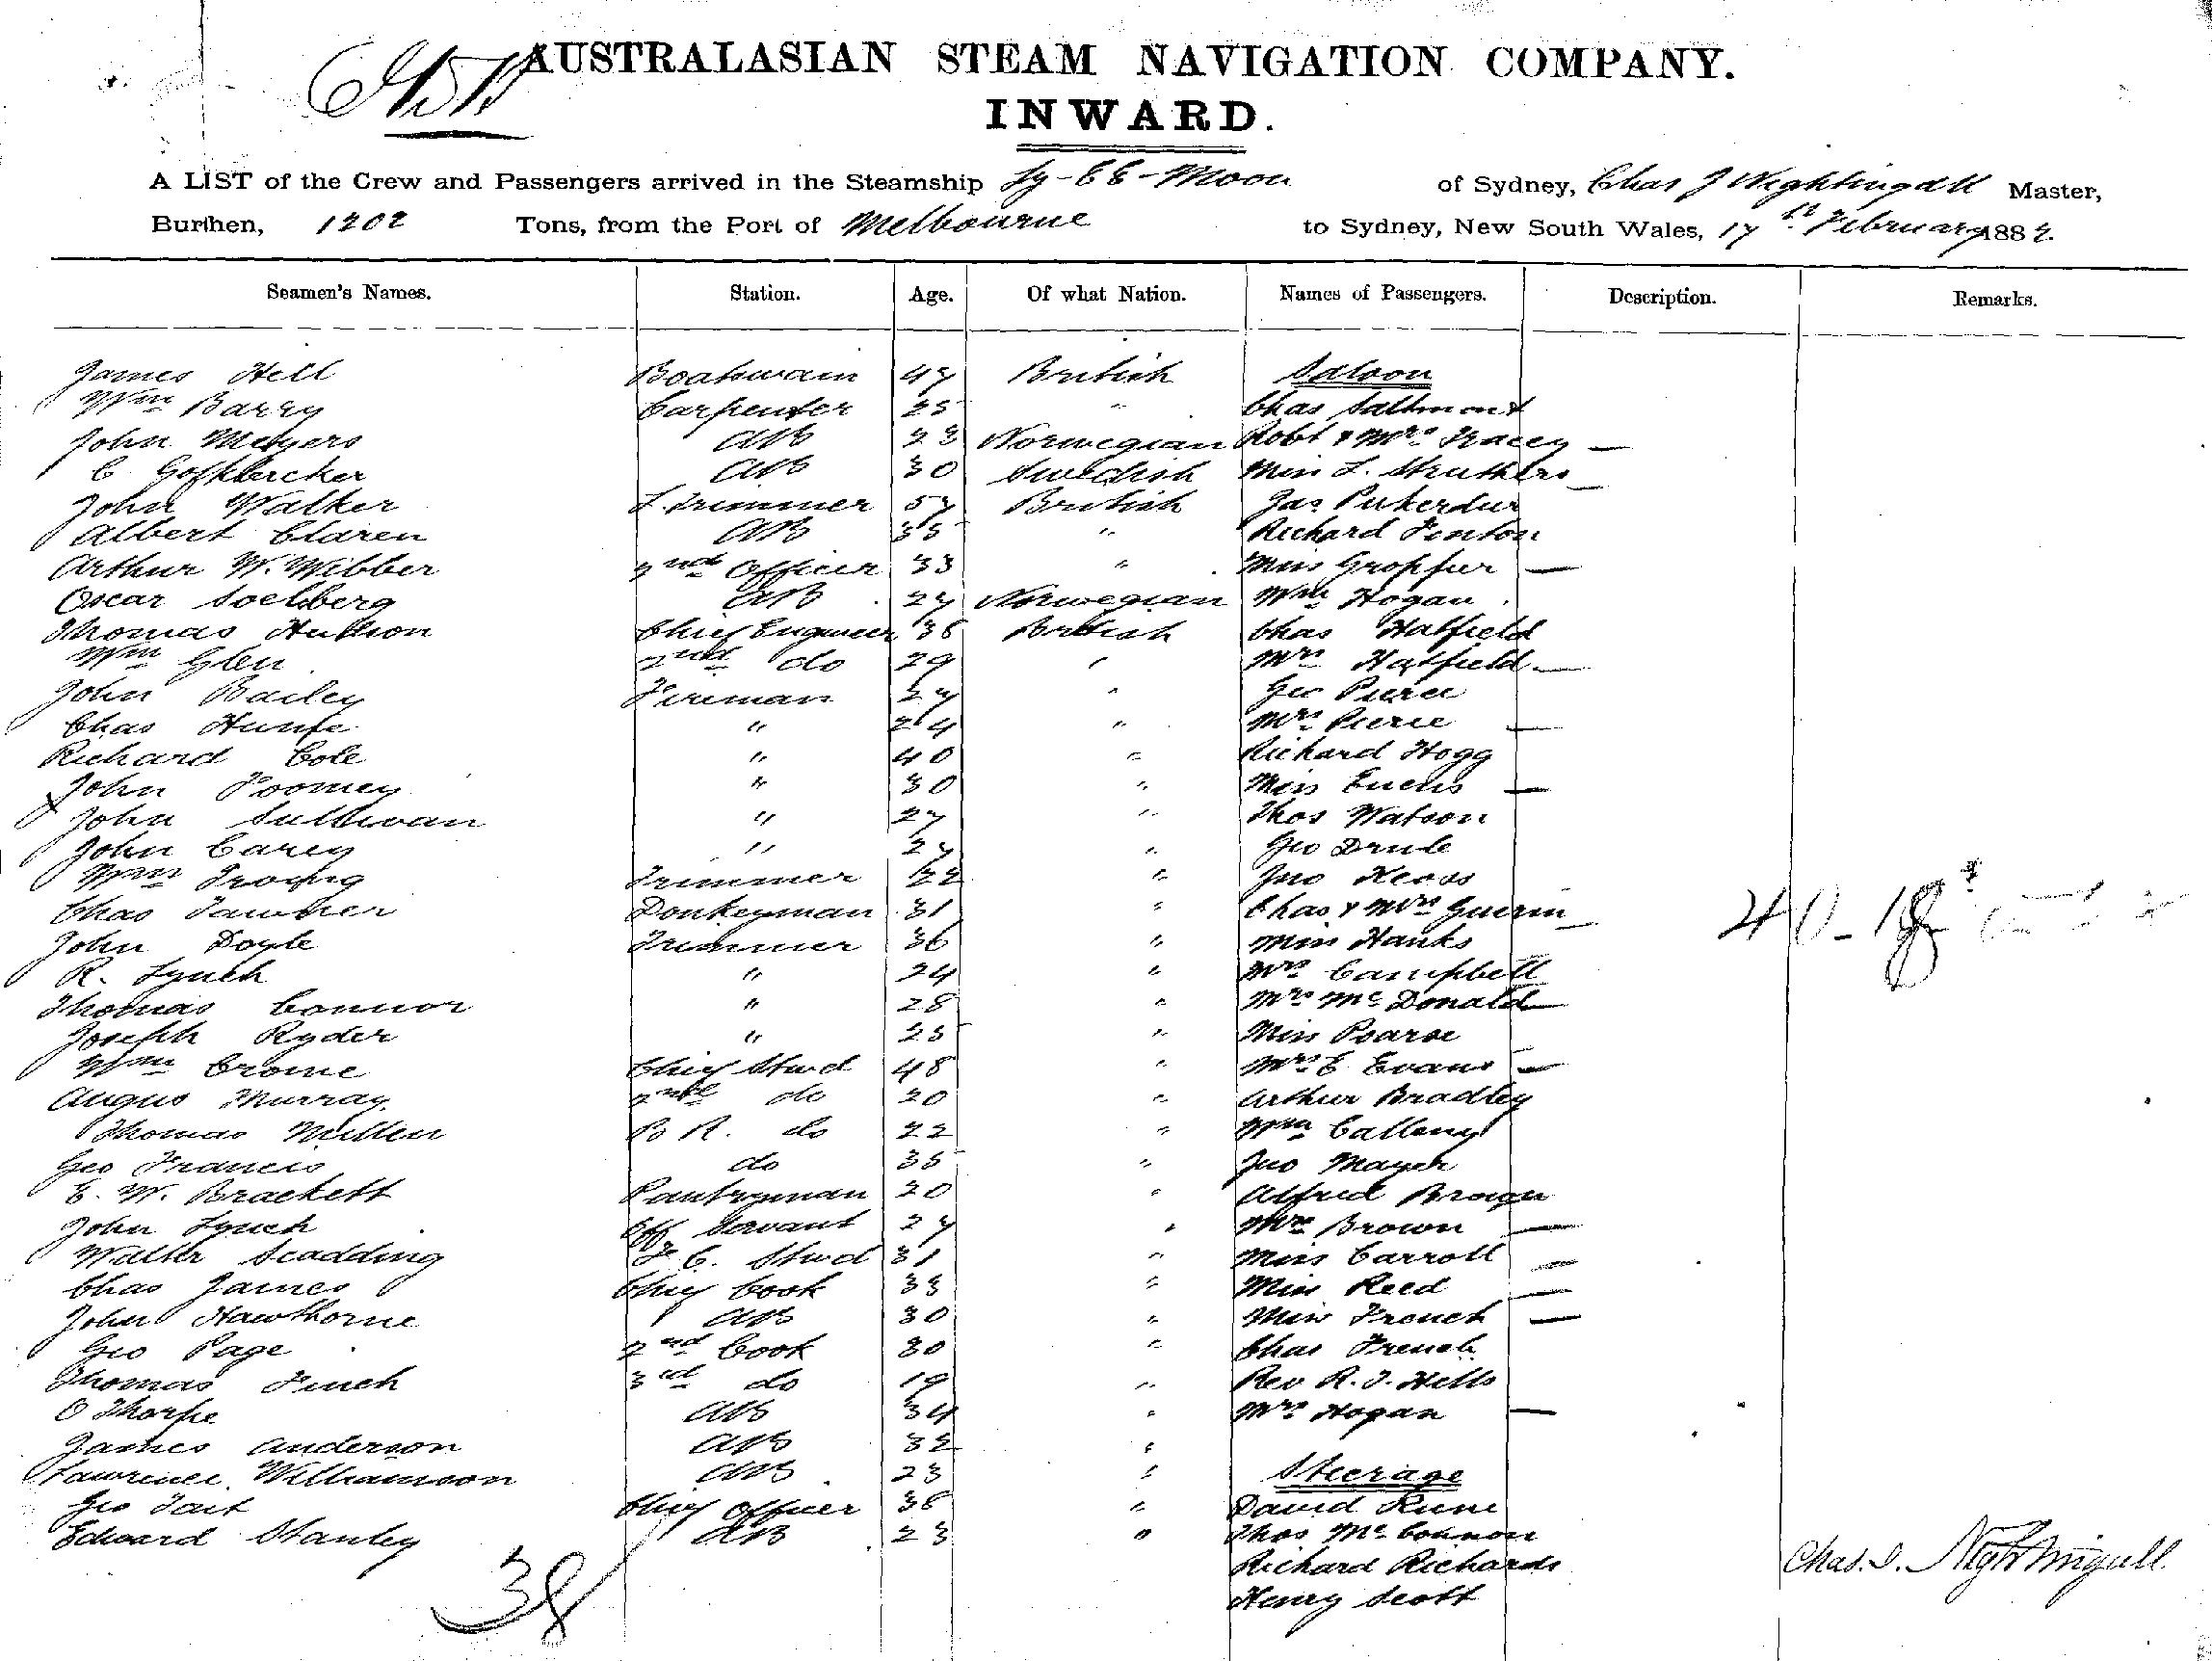 AUSTRALASIAN STEAM NAVIGATION COMPANY.
INWARD.
A LIST of the Crew and Passengers arrived in the Steamship Ly-ee-Moon of Sydney, Chas J Nightingall Master,
Burthen, 1202 Tons, from the Port of Melbourne to Sydney, New South Wales, 17th February 188
Seamen's Names. Station. Age. Of what Nation. Names of Passengers. Description. Remarks.
James Hell Boatswain 47 British Saloon
Wm Barry Carpenter 25 " Chas
John Meyers AB 23 Norwegian Robt & Mrs Tracey —
C. AB 30 Swedish Miss L. Struthers —
John Walker Trimmer 57 British Jas
Albert Claren AB 35 " Richard Fenton
Arthur W. Webber 2nd Officer 33 " Miss —
Oscar Soelberg AB 27 Norwegian Wm Hogan
Thomas Chief Engineer 36 British Chas Hatfield
Wm Glen 2nd do 29 " Mrs Hatfield —
John Bailey Fireman 27 " Geo Pierce
Chas " 24 " Mrs Pierce —
Richard Cole " 40 " Richard Hogg
John Toomey " 30 " Miss —
John Sullivan " 27 " Thos Watson
John Carey " 27 " Geo
Wm Trimmer 22 " Jno
Chas Donkeyman 31 " Chas & Mrs Guerin —
John Doyle Trimmer 36 " Miss Hanks
R. Lynch " 24 " Mrs Campbell
Thomas Connor " 28 " Mrs McDonald —
Joseph Ryder " 25 " Miss Pearse
Wm Crome Chief Stwd 48 " Mrs E. Evans —
Angus Murray 2nd do 20 " Arthur Bradley
Thomas Millen B R. do 22 " Wm
Geo Francis do 35 " Jno
E. W. Brackett Pantryman 20 " Alfred Brown
John Lynch Off Servant 27 " Mrs Brown —
Walter Scadding F. C. Stwd 31 " Miss Carroll —
Chas James Chief Cook 33 " Miss Reed —
John Hawthorne AB 30 " Miss French —
Geo Page 2nd Cook 30 " Chas French
Thomas Finch 3rd do 19 " Rev R. J. Hills
O Thorpe AB 34 " Mrs Hogan —
James Anderson AB 32 "
Lawrence Williamson AB 23 " Steerage
Geo Tait Chief Officer 36 " David
Edward Stanley AB 23 " Thos McConnon
Richard Richards
Henry Scott
38
Chas. J. Nightingall